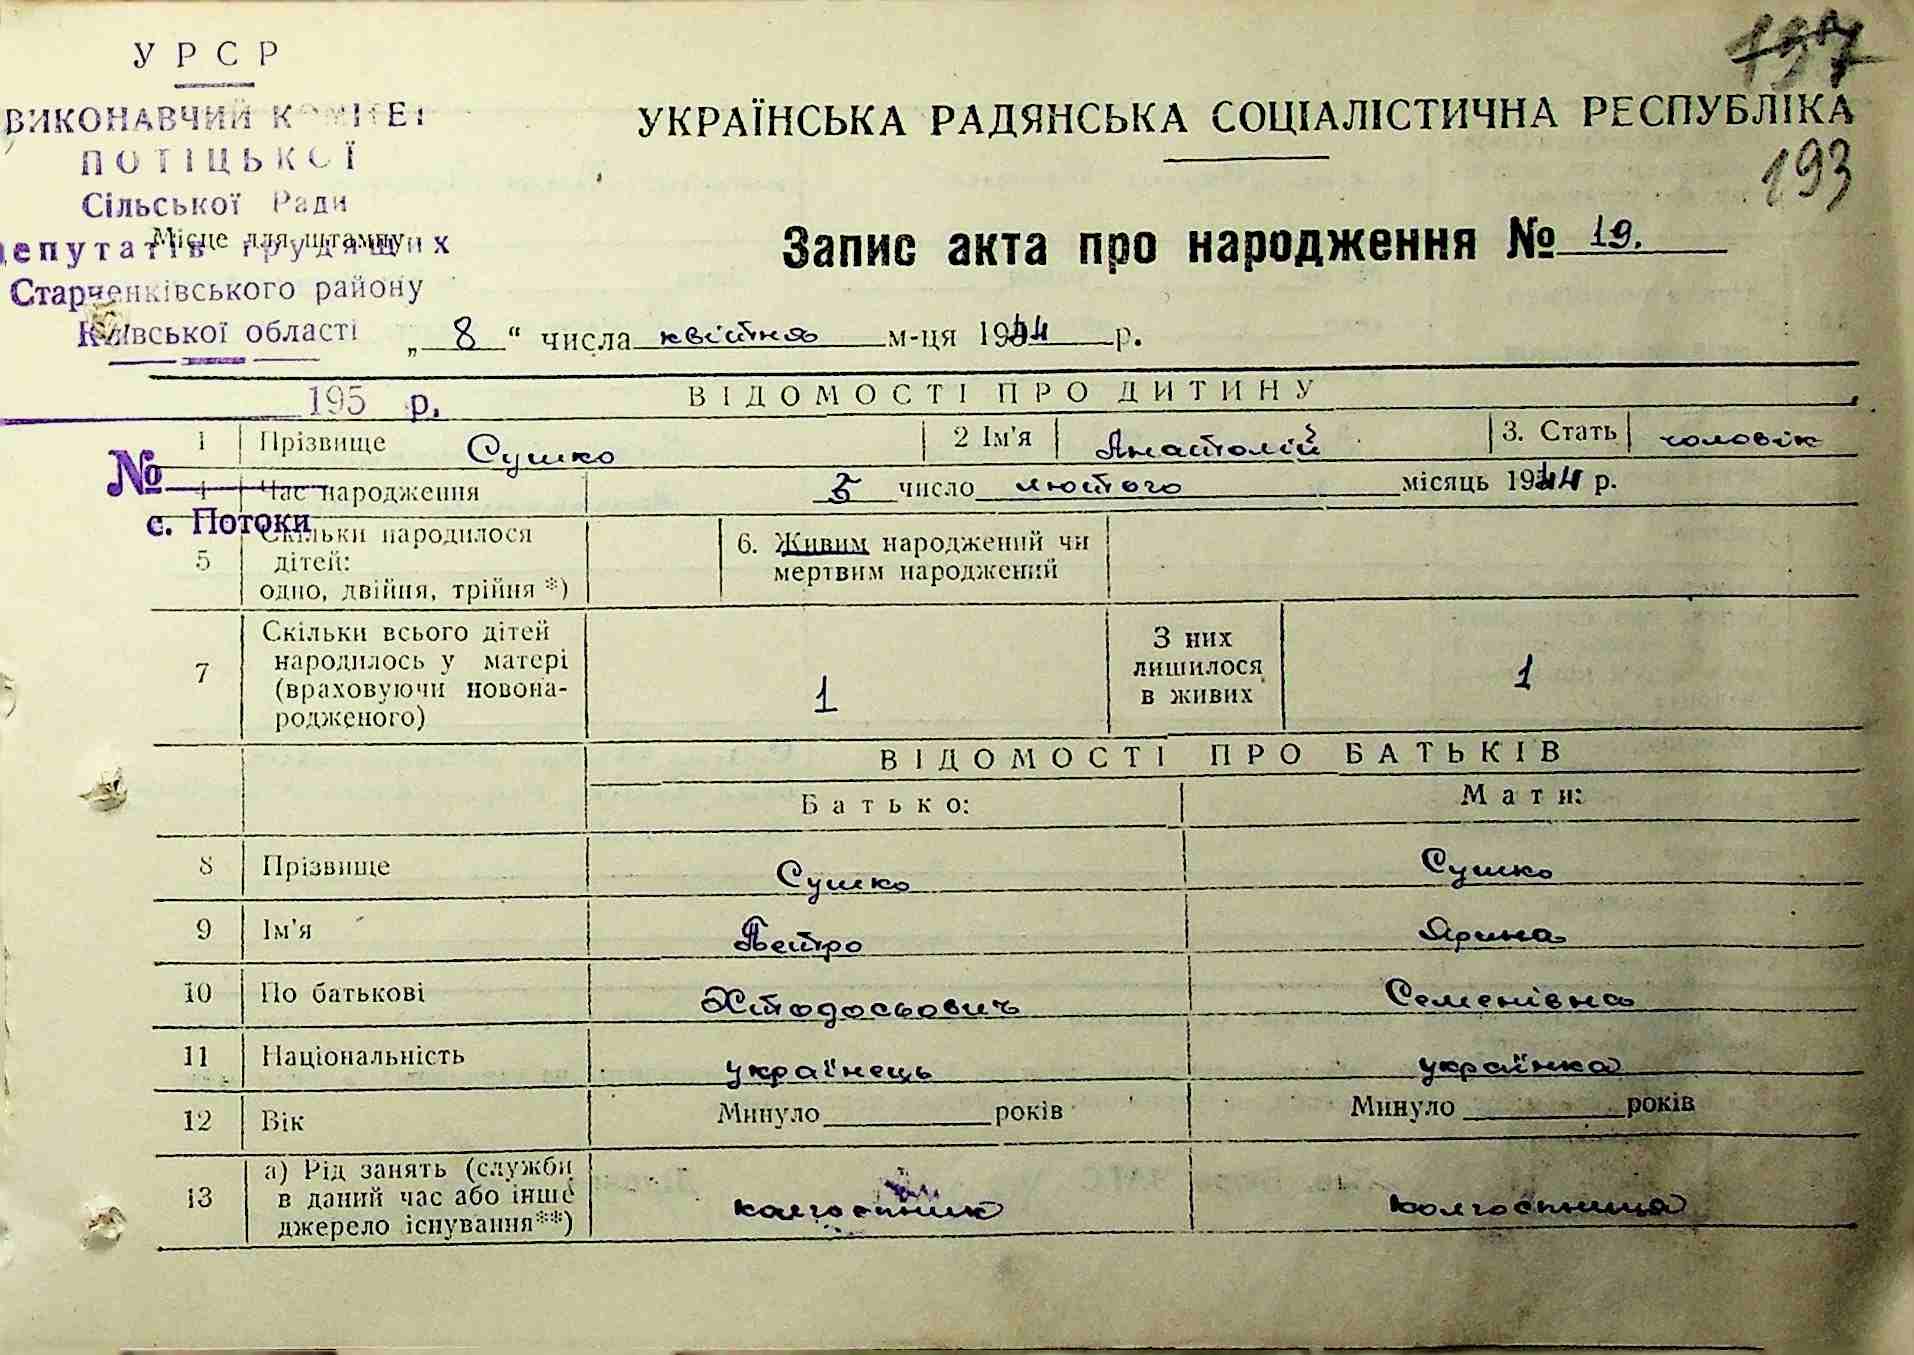 197
УКРАЇНСЬКА РАДЯНСЬКА СОЦІАЛІСТИЧНА РЕСПУБЛІКА
193
УРСР
ВИКОНАВЧИЙ КОМІТЕТ
ПОТІЦЬКОЇ
Сільської Ради
депутатів трудящих
Місце для штампу
Старченківського району
Київської області
195 р.
№
с. Потоки
Запис акта про народження № 19.
„ 8 “ числа квітня м-ця 1944 р.
ВІДОМОСТІ ПРО ДИТИНУ
1 Прізвище Сушко 2 Ім'я Анастолій 3. Стать чоловік
4 Час народження 5 число лютого місяць 1944 р.
5 Скільки народилося дітей: одно, двійня, трійня *) 6. Живим народжений чи мертвим народжений
7 Скільки всього дітей народилось у матері (враховуючи новонародженого) 1 З них лишилося в живих 1
ВІДОМОСТІ ПРО БАТЬКІВ
Батько: Мати:
8 Прізвище Сушко Сушко
9 Ім'я Петро Ярина
10 По батькові Хтодосьович Семенівна
11 Національність українець українка
12 Вік Минуло років Минуло років
13 а) Рід занять (служби в даний час або інше джерело існування**) колгоспник колгоспниця